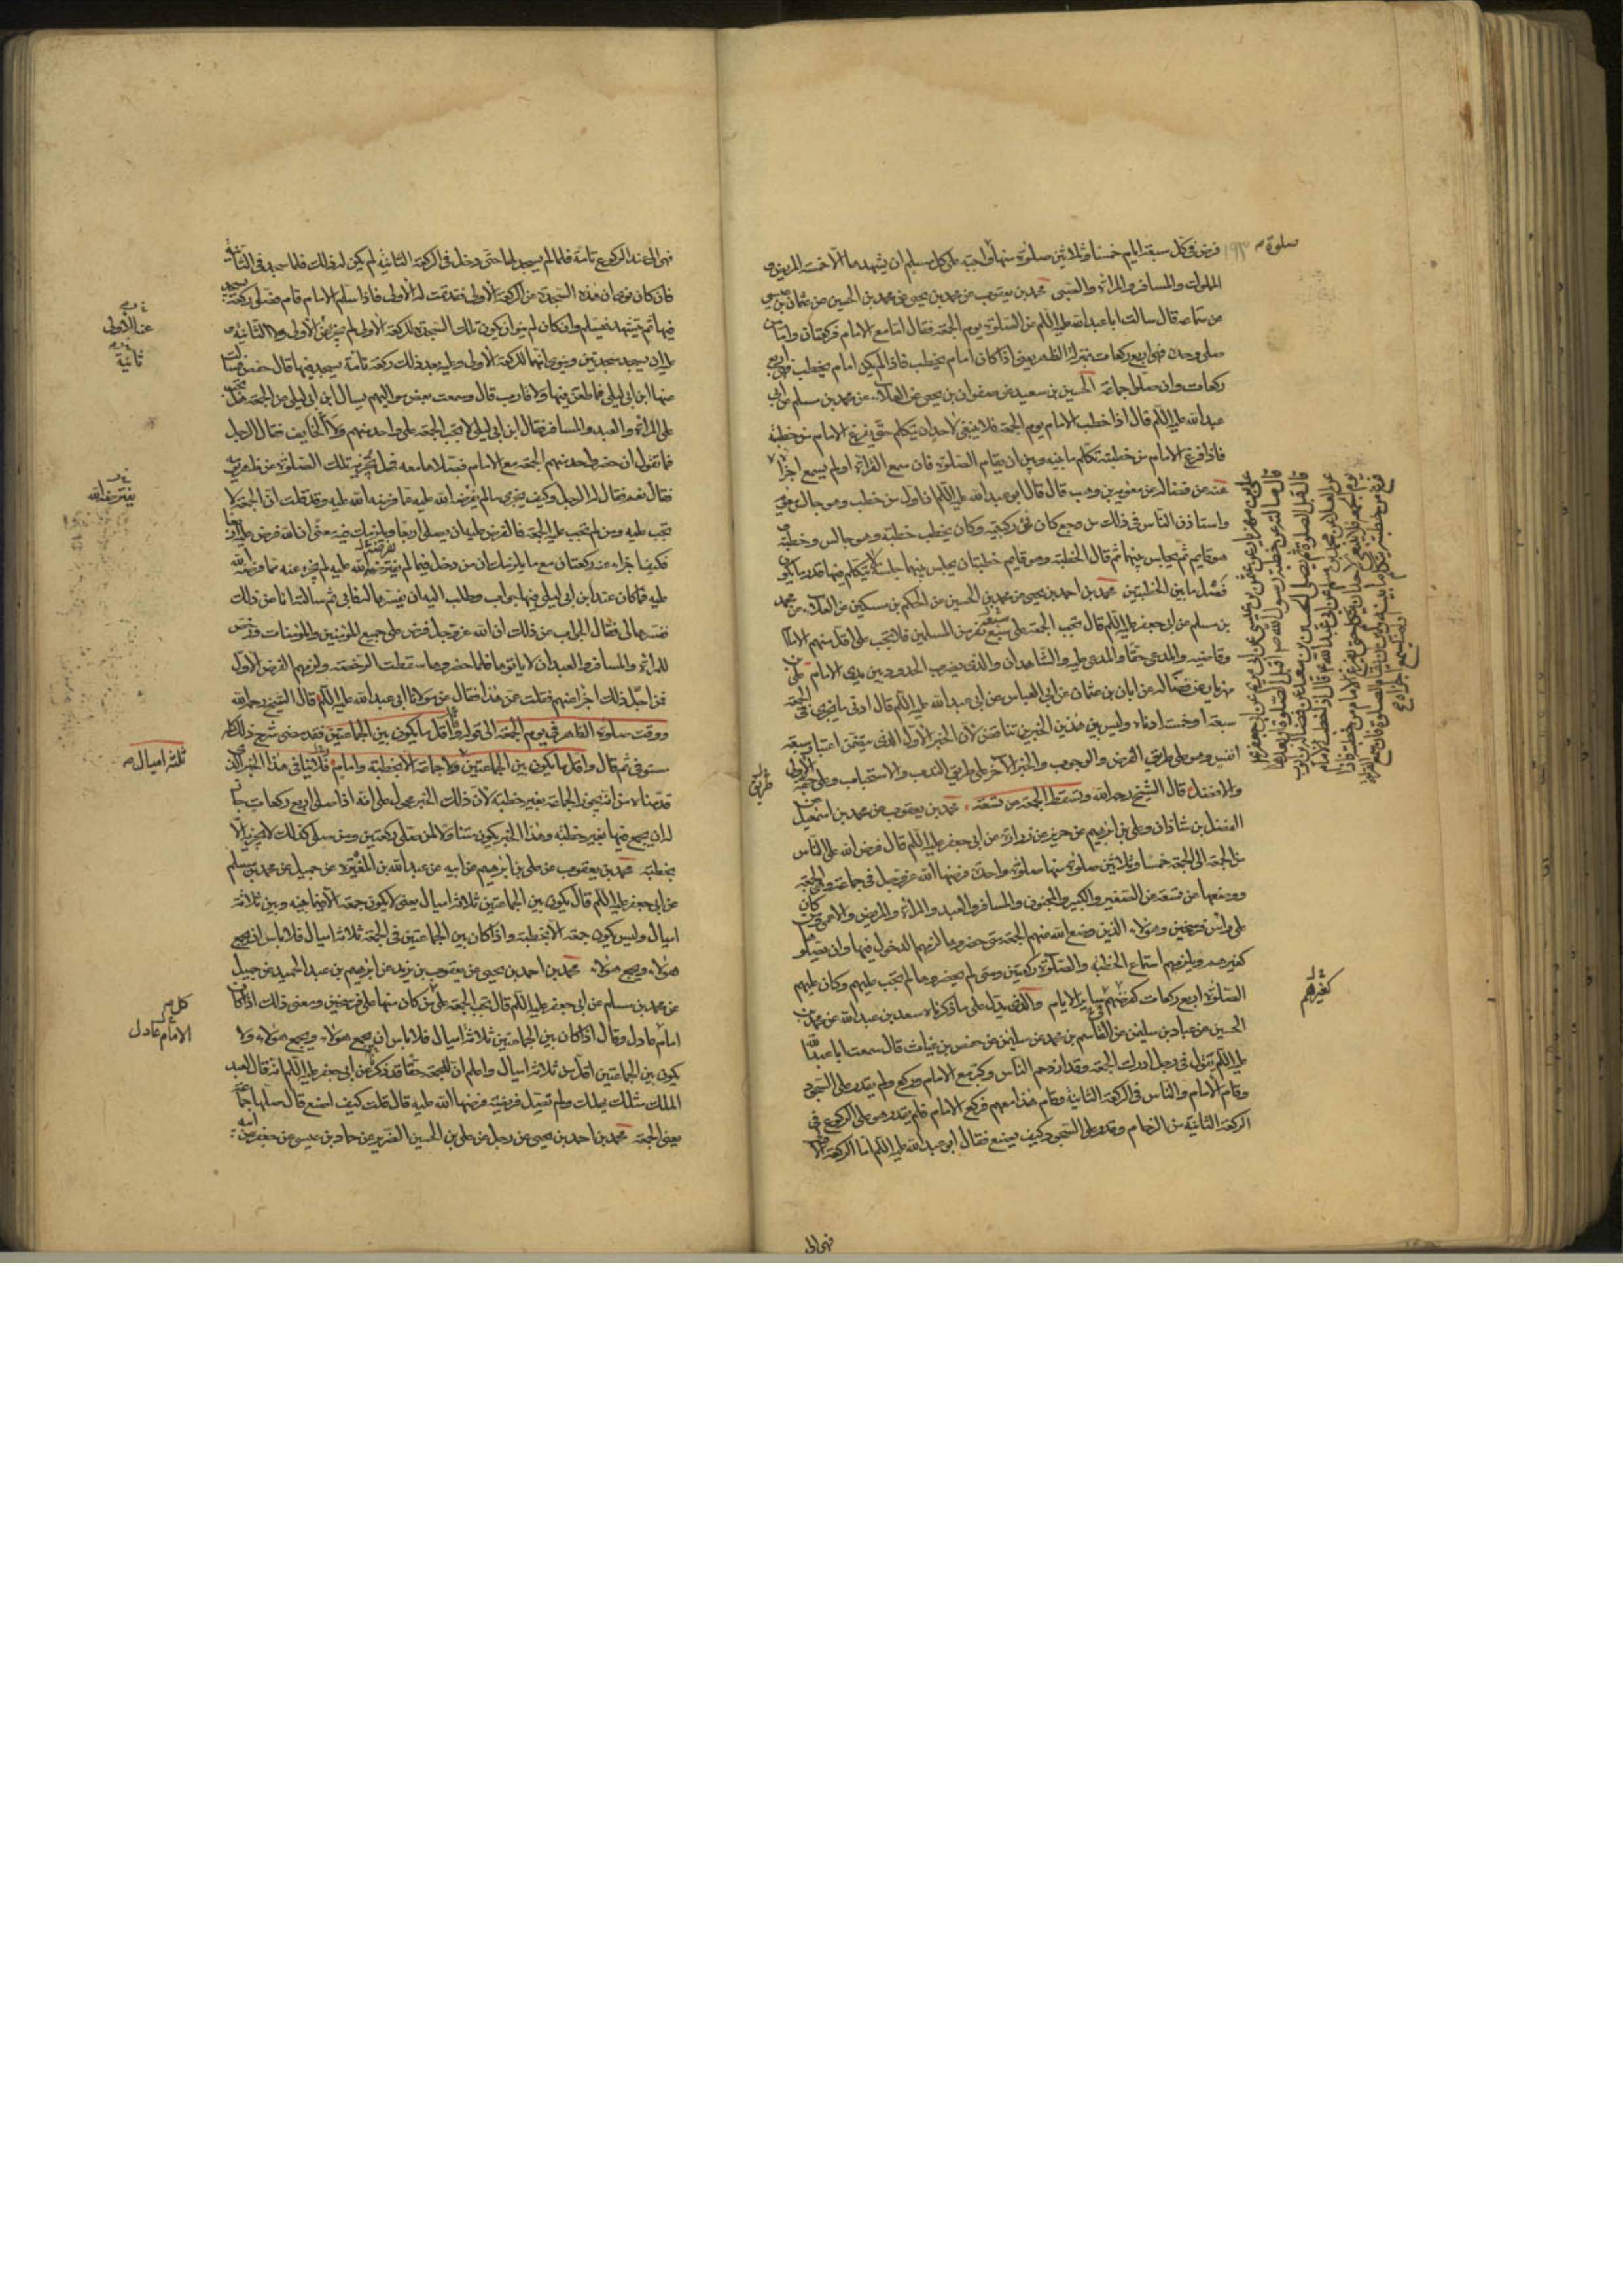 فرض فى كل سبعة ايام خمسا وثلاثين صلوة منها واجبة على كل مسلم ان يشهدها الا خمسة المريض و
المملوك والمسافر والمراة والصبى محمد بن يعقوب عن محمد بن يحيى عن محمد بن الحسين عن عثمان بن عيسى
عن سماعة قال سالت ابا عبدالله عليه السلم عن الصلوة يوم الجمعة فقال اما مع الامام فركعتان واما من
صلى وحده فهى اربع ركعات بمنزلة الظهر يعنى اذا كان امام يخطب فاذا لم يكن امام يخطب فهى اربع
ركعات وان صلوا جماعة الحسين بن سعيد عن صفوان بن يحيى عن العلاء عن محمد بن مسلم عن ابى
عبدالله عليه السلم قال اذا خطب الامام يوم الجمعة فلا ينبغى لاحد ان يتكلم حتى يفرغ الامام من خطبته
فاذا فرغ الامام من خطبته تكلم ما بينه وبين ان يقام الصلوة فان سمع القراءة او لم يسمع اجزأه
عنه عن فضالة عن معوية بن وهب قال قال ابو عبدالله عليه السلم ان اول من خطب وهو جالس معوية
واستاذن الناس فى ذلك من وجع كان فى ركبتيه وكان يخطب خطبة وهو جالس وخطبة
وهو قايم ثم يجلس بينهما ثم قال الخطبة وهو قايم خطبتان يجلس بينهما جلسة لا يتكلم فيها قدر ما يكون
فصل ما بين الخطبتين محمد بن احمد بن يحيى عن محمد بن الحسين عن الحكم بن مسكين عن العلاء عن محمد
بن مسلم عن ابى جعفر عليه السلم قال تجب الجمعة على سبعة نفر من المسلمين فلا تجب على اقل منهم الامام
وقاضيه والمدعى حقا والمدعى عليه والشاهدان والذى يضرب الحدود بين يدى الامام على بن
مهزيار عن فضالة عن ابان بن عثمان عن ابى العباس عن ابى عبدالله عليه السلم قال ادنى ما يجزى فى الجمعة
سبعة او خمسة ادناه وليس بين هذين الخبرين تناقض لان الخبر الاول الذى يتضمن اعتبار سبعة
انفس وهو على طريق الفرض والوجوب والخبر الاخر على طريق الندب والاستحباب وعلى جهة الاولى
والافضل قال الشيخ رحمه الله وتسقط الجمعة عن تسعة محمد بن يعقوب عن محمد بن اسمعيل عن
الفضل بن شاذان وعلى بن ابرهيم عن حريز عن زرارة عن ابى جعفر عليه السلم قال فرض الله على الناس
من الجمعة الى الجمعة خمسا وثلاثين صلوة منها صلوة واحدة فرضها الله عزوجل فى جماعة وهى الجمعة
ووضعها عن تسعة عن الصغير والكبير والمجنون والمسافر والعبد والمراة والمريض والاعمى ومن كان
على راس فرسخين وهؤلاء الذين وضع الله عنهم الجمعة متى حضروها لزمهم الدخول فيها وان يصلوا
كغيرهم ويلزمهم استماع الخطبة والصلوة ركعتين ومتى لم يحضروها لم تجب عليهم وكان عليهم
الصلوة اربع ركعات كفرضهم فى ساير الايام والذى يدل على ما ذكرناه سعد بن عبدالله عن محمد بن
الحسين عن عباد بن سليمن عن القاسم بن محمد عن سليمن عن حفص بن غياث قال سمعت ابا عبدالله
عليه السلم يقول فى رجل ادرك الجمعة وقد ازدحم الناس وكبر مع الامام وركع ولم يقدر على السجود
وقام الامام والناس فى الركعة الثانية وقام هذا معهم فركع الامام فلم يقدر هو على الركوع فى
الركعة الثانية من الزحام وقدر على السجود كيف يصنع فقال ابو عبدالله عليه السلم اما الركعة الاولى
فهى الى
صلوة
طريق
كغيرهم
فهى الى عند الركوع تامة فلما لم يسجد لها حتى دخل فى الركعة الثانية لم يكن له ذلك فلما سجد فى الثانية
فان كان نوى ان هذه السجدة من الركعة الاولى فقد تمت له الاولى فاذا سلم الامام قام فصلى ركعة يسجد
فيها ثم يتشهد ويسلم وان كان لم ينو ان يكون تلك السجدة للركعة الاولى لم تجز عن الاولى ولا الثانية و
عليه ان يسجد سجدتين وينوى انهما للركعة الاولى وعليه بعد ذلك ركعة تامة يسجد فيها قال حفص فسالت
عنها ابن ابى ليلى فما طعن فيها ولا قارب قال وسمعت بعض مواليهم يسال ابن ابى ليلى عن الجمعة هل تجب
على المراة والعبد والمسافر فقال ابن ابى ليلى لا تجب الجمعة على واحد منهم ولا الخايف فقال الرجل
فما تقول ان حضر واحد منهم الجمعة مع الامام فصلاها معه فهل تجزيه تلك الصلوة عن ظهر يومه
فقال نعم فقال له الرجل وكيف يجزى ما لم يفرضه الله عليه عما فرضه الله عليه وقد قلت ان الجمعة لا
تجب عليه ومن لم تجب عليه الجمعة فالفرض عليه ان يصلى اربعا ويلزمك فيه معنى ان الله فرض عليه اربعا
فكيف اجزاه عنه ركعتان مع ما يلزمك ان من دخل فيما لم يفترضه الله عليه لم يجزه عنه مما فرض الله
عليه فما كان عند ابن ابى ليلى فيها جواب وطلب اليه ان يفسرها له فابى ثم سالته انا عن ذلك
ففسرها لى فقال الجواب عن ذلك ان الله عزوجل فرض على جميع المؤمنين والمؤمنات ورخص
للمراة والمسافر والعبد ان لا ياتوها فلما حضروها سقطت الرخصة ولزمهم الفرض الاول
فمن اجل ذلك اجزأ عنهم فقلت عمن هذا فقال عن مولانا ابى عبدالله عليه السلم قال الشيخ رحمه الله
ووقت صلوة الظهر فى يوم الجمعة الى قوله واقل ما يكون بين الجماعتين فقد مضى شرح ذلك كله
مستوفى ثم قال واقل ما يكون بين الجماعتين ولا جماعة الا بخطبة وامام فلا ينافى هذا الخبر الذى
قدمناه من انه يجوز الجماعة بغير خطبة لان ذلك الخبر محمول على انه اذا صلى اربع ركعات جاز
له ان يجمع فيها بغير خطبة وهذا الخبر يكون متناولا لمن صلى ركعتين ومن صلى كذلك لا يجزيه الا
بخطبة محمد بن يعقوب عن على بن ابرهيم عن ابيه عن عبدالله بن المغيرة عن جميل عن محمد بن مسلم
عن ابى جعفر عليه السلم قال يكون بين الجماعتين ثلاثة اميال يعنى لا يكون جمعة الا فيما بينه وبين ثلاثة
اميال وليس يكون جمعة الا بخطبة واذا كان بين الجماعتين فى الجمعة ثلاثة اميال فلا باس ان يجمع
هؤلاء ويجمع هؤلاء محمد بن احمد بن يحيى عن يعقوب بن يزيد عن ابرهيم بن عبد الحميد عن جميل
عن محمد بن مسلم عن ابى جعفر عليه السلم قال تجب الجمعة على من كان منها على فرسخين ومعنى ذلك اذا كان
امام عادل وقال اذا كان بين الجماعتين ثلاثة اميال فلا باس ان يجمع هؤلاء ويجمع هؤلاء ولا
يكون بين الجماعتين اقل من ثلاثة اميال واعلم ان للجمعة حقا قد ذكر عن ابى جعفر عليه السلم انه قال لعبد
الملك مثلك يهلك ولم تصل فريضة فرضها الله عليه قال قلت كيف اصنع قال صلها جماعة
يعنى الجمعة محمد بن احمد بن يحيى عن رجل عن على بن الحسين الضرير عن حماد بن عيسى عن جعفر عن ابيه
عن الاولى
ثانية
يفترض الله
ثلثة اميال
كل
الامام عادل